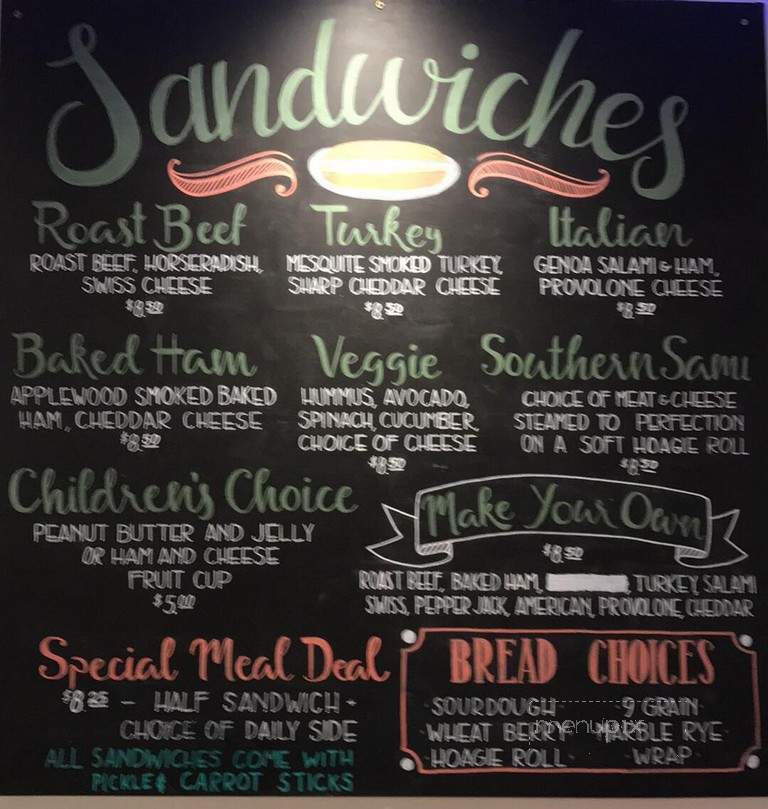 Sandwiches
Roast Beef
ROAST BEEF, HORSERADISH,
SWISS CHEESE
$8.50
Turkey
MESQUITE SMOKED TURKEY,
SHARP CHEDDAR CHEESE
$8.50
Italian
GENOA SALAMI & HAM,
PROVOLONE CHEESE
$8.50
Baked Ham
APPLEWOOD SMOKED BAKED
HAM, CHEDDAR CHEESE
$8.50
Veggie
HUMMUS, AVOCADO,
SPINACH, CUCUMBER,
CHOICE OF CHEESE
$8.50
Southern Sami
CHOICE OF MEAT & CHEESE
STEAMED TO PERFECTION
ON A SOFT HOAGIE ROLL
$8.50
Children's Choice
PEANUT BUTTER AND JELLY
OR HAM AND CHEESE
FRUIT CUP
$5.00
Make Your Own
$8.50
ROAST BEEF, BAKED HAM, , TURKEY, SALAMI
SWISS, PEPPER JACK, AMERICAN, PROVOLONE, CHEDDAR
Special Meal Deal
$8.25 - HALF SANDWICH -
CHOICE OF DAILY SIDE
ALL SANDWICHES COME WITH
PICKLE & CARROT STICKS
BREAD CHOICES
· SOURDOUGH · 9 GRAIN ·
· WHEAT BERRY · MARBLE RYE ·
· HOAGIE ROLL · WRAP ·